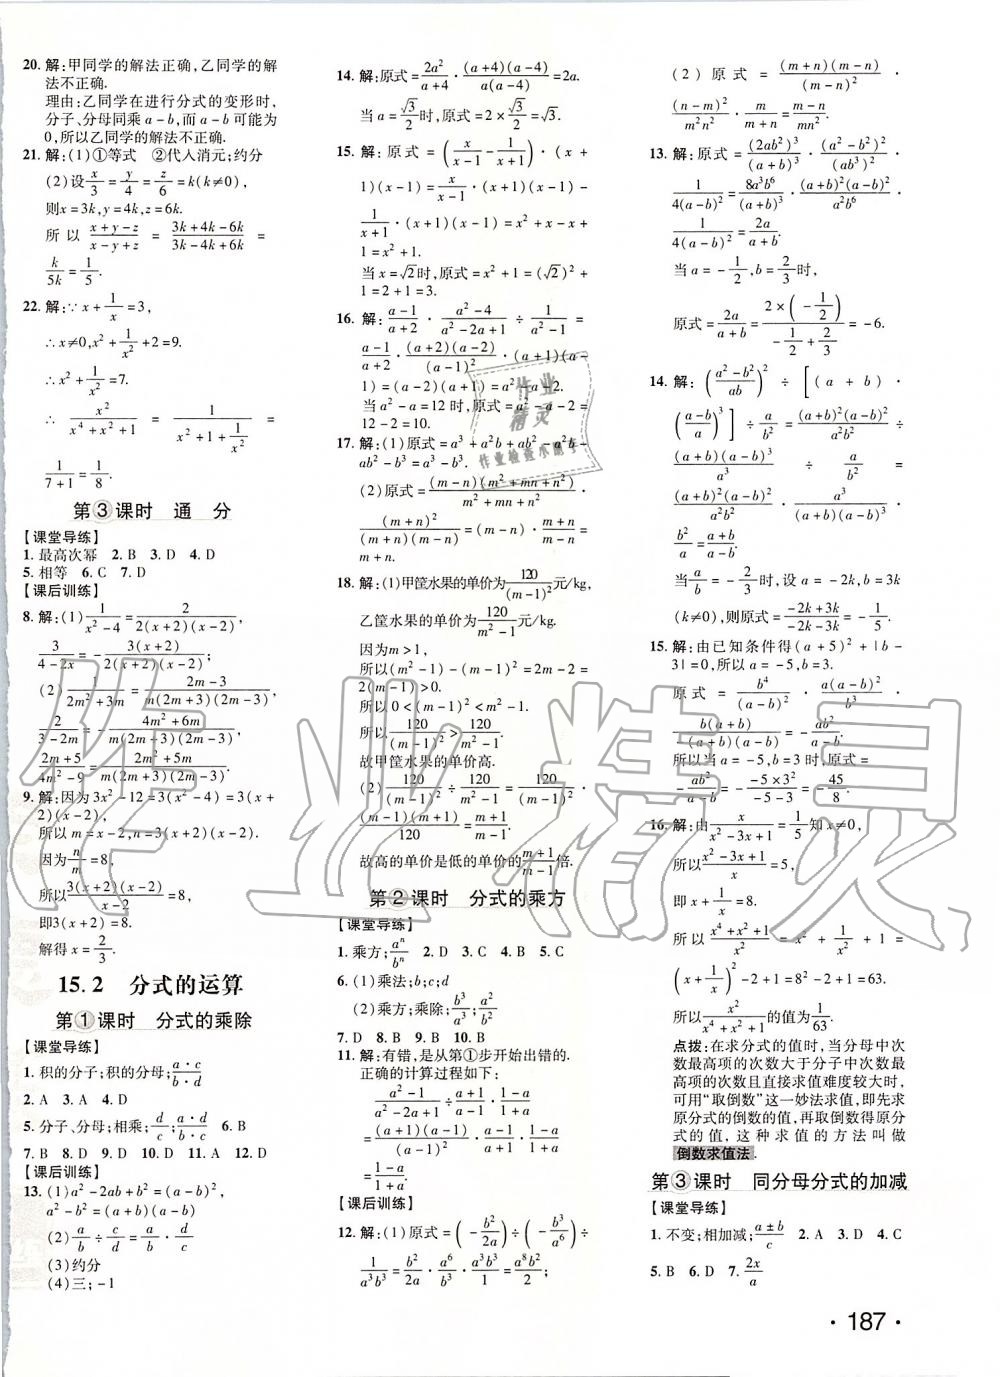 20. 解:甲同学的解法正确,乙同学的解
法不正确.
理由:乙同学在进行分式的变形时,
分子、分母同乘 a-b,而 a-b 可能为
0,所以乙同学的解法不正确.
21. 解:(1)①等式 ②代人消元;约分
(2)设 x/3 = y/4 = z/6 = k(k≠0),
则x=3k,y=4k,z=6k.
所以 (x+y-z)/(x-y+z) = (3k+4k-6k)/(3k-4k+6k) =
k/5k = 1/5.
22. 解:∵x+1/x=3,
∴x≠0,x²+1/x²+2=9.
∴x²+1/x²=7.
∴ x²/(x⁴+x²+1) = 1/(x²+1+1/x²) =
1/(7+1) = 1/8.
第③课时 通 分
【课堂导练】
1. 最高次幂 2. B 3. D 4. D
5. 相等 6. C 7. D
【课后训练】
8. 解:(1) 1/(x²-4) = 2/(2(x+2)(x-2)),
3/(4-2x) = -3(x+2)/(2(x+2)(x-2));
(2) 1/(2m²+3m) = (2m-3)/(m(2m+3)(2m-3)),
2/(3-2m) = -(4m²+6m)/(m(2m+3)(2m-3)),
(2m+5)/(4m²-9) = (2m²+5m)/(m(2m+3)(2m-3)).
9. 解:因为3x²-12=3(x²-4)=3(x+
2)(x-2),
所以 m=x-2,n=3(x+2)(x-2).
因为 n/m = 8,
所以 3(x+2)(x-2)/(x-2) = 8,
即3(x+2)=8.
解得 x=2/3.
15.2 分式的运算
第①课时 分式的乘除
【课堂导练】
1. 积的分子;积的分母; (a·c)/(b·d)
2. A 3. A 4. A
5. 分子、分母;相乘; d/c; (a·d)/(b·c) 6. B
7. B 8. D 9. D 10. D 11. A 12. A
【课后训练】
13. (1)a²-2ab+b²=(a-b)²,
a²-b²=(a+b)(a-b)
(2) a/b ÷ c/d = a/b · d/c
(3)约分
(4)三;-1
14. 解:原式= 2a²/(a+4) · (a+4)(a-4)/(a(a-4)) =2a.
当 a=√3/2 时,原式=2×√3/2=√3.
15. 解:原式=(x/(x-1) - 1/(x+1))·(x+
1)(x-1)= x/(x-1)·(x+1)(x-1)-
1/(x+1)·(x+1)(x-1)=x²+x-x+
1=x²+1.
当 x=√2 时,原式=x²+1=(√2)²+
1=2+1=3.
16. 解: (a-1)/(a+2) · (a²-4)/(a²-2a+1) ÷ 1/(a²-1) =
(a-1)/(a+2) · (a+2)(a-2)/(a-1)² ·(a+1)(a-
1)=(a-2)(a+1)=a²-a-2.
当 a²-a=12 时,原式=a²-a-2=
12-2=10.
17. 解:(1)原式=a³+a²b+ab²-a²b-
ab²-b³=a³-b³.
(2)原式= (m-n)(m²+mn+n²)/(m²+mn+n²) ·
(m+n)²/((m+n)(m-n)) =(m-n)· (m+n)/(m-n)
=m+n.
18. 解:(1)甲筐水果的单价为 120/(m-1)² 元/kg,
乙筐水果的单价为 120/(m²-1) 元/kg.
因为m>1,
所以(m²-1)-(m-1)²=2m-2=
2(m-1)>0.
所以0<(m-1)²<m²-1.
所以 120/(m-1)² > 120/(m²-1).
故甲筐水果的单价高.
(2) 120/(m-1)² ÷ 120/(m²-1) = 120/(m-1)² ·
(m-1)(m+1)/120 = (m+1)/(m-1).
故高的单价是低的单价的 (m+1)/(m-1) 倍.
第②课时 分式的乘方
【课堂导练】
1. 乘方; aⁿ/bⁿ 2. D 3. C 4. C 5. C
6. (1)乘法;b;c;d
(2)乘方;乘除; b³/a³; b²/a²
7. D 8. B 9. B 10. B
11. 解:有错,是从第①步开始出错的.
正确的计算过程如下:
(a²-1)/(a²-2a+1) ÷ (a+1)/(a-1) · (1-a)/(1+a)
= (a+1)(a-1)/(a-1)² · (a-1)/(a+1) · (1-a)/(1+a)
= (1-a)/(1+a).
【课后训练】
12. 解:(1)原式=(-b²/2a)÷(-b²/a)÷
1/(a³b³) = b²/2a · a/b² · a³b³/1 = a³b³/2;
(2)原式= (m+n)(m-n)/(m-n)² ·
(n-m)²/(m²n²) · m/(m+n) = (m-n)/(mn²).
13. 解:原式= (2ab²)³/(a+b)³ · (a²-b²)²/(ab³)² ·
1/(4(a-b)²) = 8a³b⁶/(a+b)³ · (a+b)²(a-b)²/(a²b⁶) ·
1/(4(a-b)²) = 2a/(a+b).
当a=-1/2,b=2/3时,
原式= 2a/(a+b) = (2×(-1/2))/(-1/2+2/3) =-6.
14. 解: ((a²-b²)/ab)² ÷ [(a+b)·
((a-b)/a)³]· a/b = (a+b)²(a-b)²/(a²b²) ÷
(a+b)(a-b)³/a³ · a/b =
(a+b)²(a-b)²/(a²b²) · a³/((a+b)(a-b)³) ·
b²/a = (a+b)/(a-b).
当 a/b = -2/3 时,设 a=-2k,b=3k
(k≠0),则原式= (-2k+3k)/(-2k-3k) = -1/5.
15. 解:由已知条件得(a+5)²+|b-
3|=0,所以 a=-5,b=3.
原式= b⁴/(a-b)² · a(a-b)/b² ·
b(a+b)/((a+b)(a-b)) =
当 a=-5,b=3时,原式=
-ab²/(a-b) = (-5×3²)/(-5-3) = -45/8.
16. 解:由 x/(x²-3x+1) = 1/5 知x≠0,
所以 (x²-3x+1)/x =5,
即 x+1/x =8.
所以 (x⁴+x²+1)/x² =
(x+1/x)²-2+1=8²-2+1=63.
所以 x²/(x⁴+x²+1) 的值为 1/63.
点拨:在求分式的值时,当分母中次
数最高项的次数大于分子中次数最
高项的次数且直接求值难度较大时,
可用“取倒数”这一妙法求值,即先求
原分式的倒数的值,再取倒数得原分
式的值,这种求值的方法叫做
倒数求值法.
第③课时 同分母分式的加减
【课堂导练】
1. 不变;相加减; (a±b)/c 2. A 3. D 4. C
5. B 6. D 7. 2x/a
·187·
作业精灵
作业
精灵
作业检查小助手